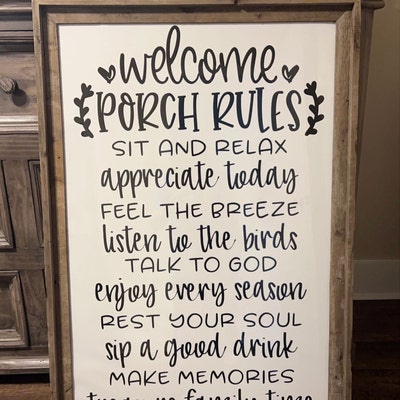 welcome
PORCH RULES
SIT AND RELAX
appreciate today
FEEL THE BREEZE
listen to the birds
TALK TO GOD
enjoy every season
REST YOUR SOUL
sip a good drink
MAKE MEMORIES
family time